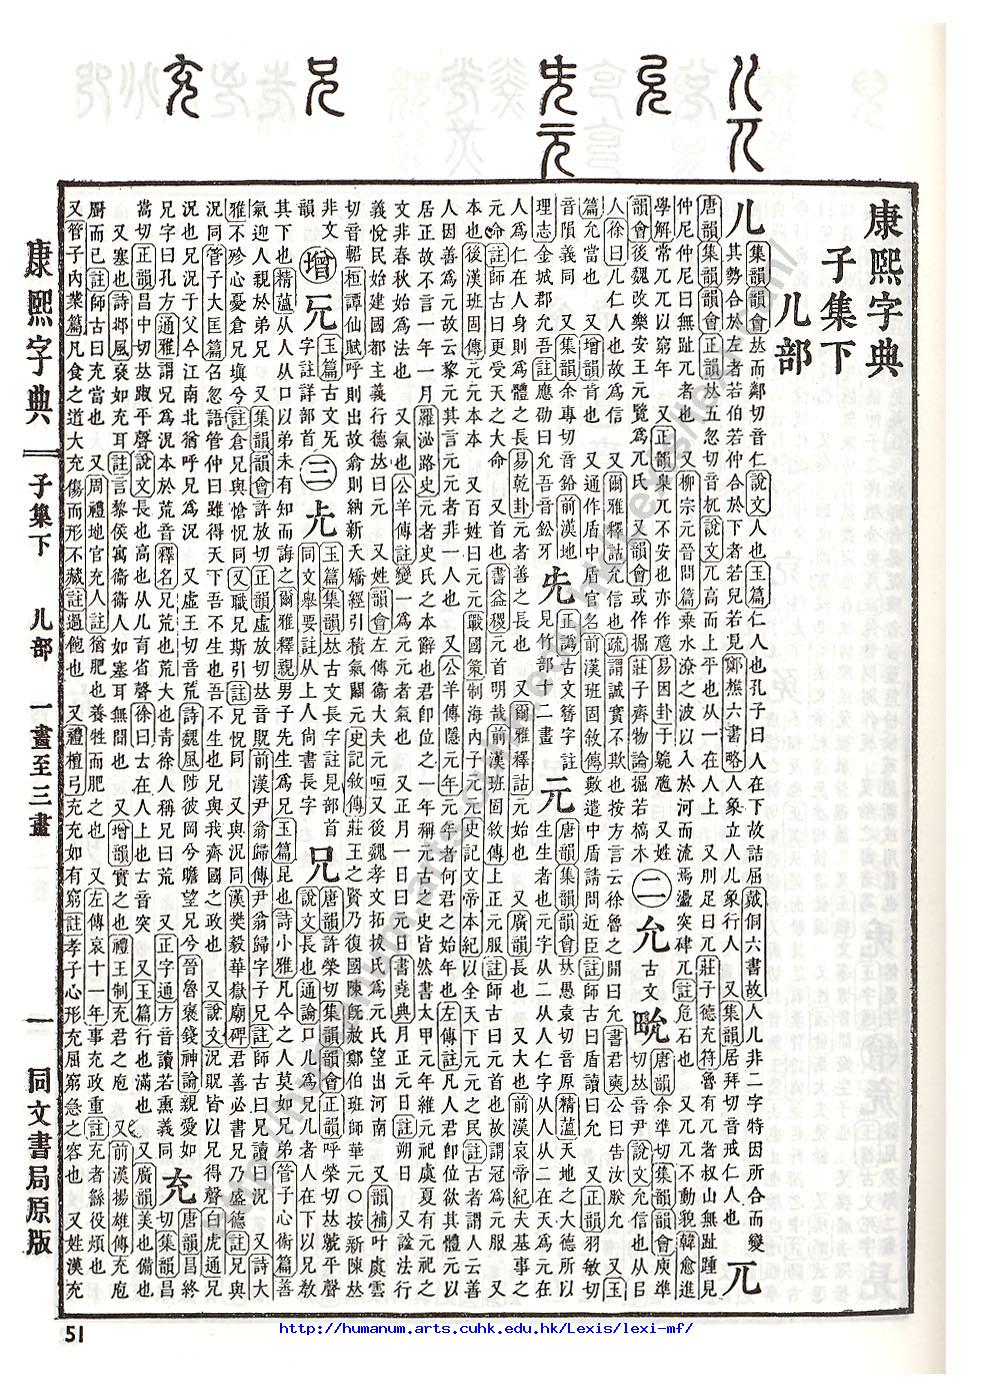 康熙字典
子集下
儿部
儿 集韻韻會𠀤而鄰切音仁說文人也玉篇仁人也孔子曰人在下故詰屈戴侗六書故人儿非二字特因所合而變
其勢合於左者若伯若仲合於下者若兒若見鄭樵六書略人象立人儿象行人 又集韻居拜切音戒仁人也 兀
唐韻集韻韻會正韻𠀤五忽切音杌說文兀高而上平也从一在人上 又刖足曰兀莊子德充符魯有兀者叔山無趾踵見
仲尼仲尼曰無趾兀者也 又柳宗元晉問篇乘水潦之波以入於河而流焉盪突硉兀註危石也 又兀兀不動貌韓愈進
學解常兀兀以窮年 又正韻臬兀不安也亦作卼易困卦于臲卼 又姓
韻會後魏改樂安王元覽爲兀氏 又韻會或作掘莊子齊物論掘若槁木 二 允 古文㽙 唐韻余準切集韻韻會庾準
切𠀤音尹說文允信也从㠯
人徐曰儿仁人也故爲信 又爾雅釋詁允信也疏謂誠實不欺也按方言云徐魯之閒曰允書君奭公曰告汝朕允 又玉
篇允當也 又增韻肯也 又通作盾中盾官名前漢班固敘傳數遣中盾請問近臣註師古曰盾讀曰允 又正韻羽敏切
音隕義同 又集韻余專切音鉛前漢地
理志金城郡允吾註應劭曰允吾音鈆牙 兂 正譌古文簪字註
見竹部十二畫 元 唐韻集韻韻會𠀤愚袁切音原精薀天地之大德所以
生生者也元字从二从人仁字从人从二在天爲元在
人爲仁在人身則爲體之長易乾卦元者善之長也 又爾雅釋詁元始也 又廣韻長也 又大也前漢哀帝紀夫基事之
元命註師古曰更受天之大命 又首也書益稷元首明哉前漢班固敘傳上正元服註師古曰元首也故謂冠爲元服 又
本也後漢班固傳元元本本 又百姓曰元元戰國策制海內子元元史記文帝本紀以全天下元元之民註古者謂人云善
人因善爲元故云黎元其言元元者非一人也 又公羊傳隱元年元年者何君之始年也左傳註凡人君卽位欲其體元以
居正故不言一年一月羅泌路史元者史氏之本辭也君卽位之一年稱元古之史皆然書太甲元年維元祀虞夏有元祀之
文非春秋始爲法也 又氣也公羊傳註變一爲元元者氣也 又正月一日曰元日書堯典月正元日註朔日 又諡法行
義悅民始建國都主義行德𠀤曰元 又姓韻會左傳衞大夫元咺又後魏孝文拓拔爲元氏望出河南 又韻補叶虞雲
切音輑桓譚仙賦呼則出故翕則納新夭矯經引積氣關元史記敘傳莊王之賢乃復國陳旣赦鄭伯班師華元○按新陳𠀤
非文
韻 增 元 玉篇古文旡
字註詳部首 三 𠑷 玉篇集韻𠀤古文長字註見部首
同文舉要註从上人尙書長字 兄 唐韻許榮切集韻韻會正韻呼榮切𠀤虩平聲
說文長也通論口儿爲兄儿者人在下以兄敎
其下也精薀从人从口以弟未有知而誨之爾雅釋親男子先生爲兄玉篇昆也詩小雅凡今之人莫如兄弟管子心術篇善
氣迎人親於弟兄 又集韻韻會許放切正韻虛放切𠀤音貺前漢尹翁歸傳尹翁歸字子兄註師古曰兄讀曰況 又詩大
雅不殄心憂倉兄塡兮註倉兄與愴怳同又職兄斯引註兄怳同 又與況同漢樊毅華嶽廟碑君善必書兄乃盛德註兄與
況同管子大匡篇召忽語管仲曰雖得天下吾不生也兄與我齊國之政也 又說文況貺皆以兄得聲白虎通兄
況也兄況于父今江南北猶呼兄爲況 又虛王切音荒詩魏風陟彼岡兮瞻望兄兮晉魯褒錢神論親愛如
兄字曰孔方通雅謂兄爲況本於荒音釋名兄荒也荒大也靑徐人稱兄曰荒 又正字通方音讀若熏義同 充 唐韻昌終
切集韻昌
嵩切正韻昌中切𠀤踧平聲說文長也高也从儿育省聲徐曰𠫓在人上也𠫓音突 又玉篇行也滿也 又廣韻美也備也
又塞也詩邶風褎如充耳註言黎侯寓衞衞人如塞耳無聞也 又增韻實之也禮王制充君之庖 又前漢揚雄傳充庖
厨而已註師古曰充當也 又周禮地官充人註猶肥也養牲而肥之也 又左傳哀十一年事充政重註充者繇役煩也
又管子內業篇凡食之道大充傷而形不藏註過飽也 又禮檀弓充充如有窮註孝子心形充屈窮急之容也 又姓漢充
康熙字典 子集下 儿部 一畫至三畫 一 同文書局原版
51
http://humanum.arts.cuhk.edu.hk/Lexis/lexi-mf/
http://humanum.arts.cuhk.edu.hk/Lexis/lexi-mf/